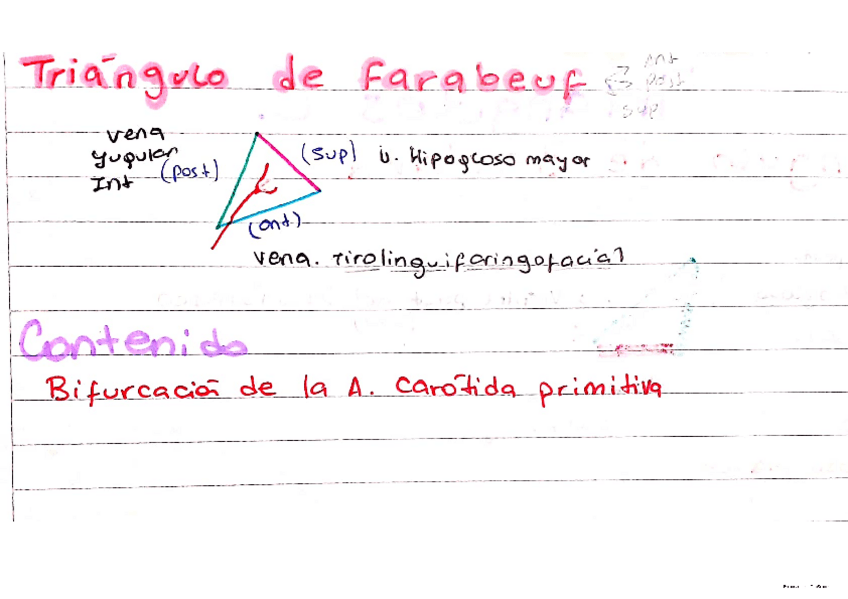 Triángulo de Farabeuf
ant
post
sup
vena
yugular
Int
(post)
(sup) n. Hipogloso mayor
(ant)
vena. tirolinguifaringofacial
Contenido
Bifurcación de la A. Carótida primitiva